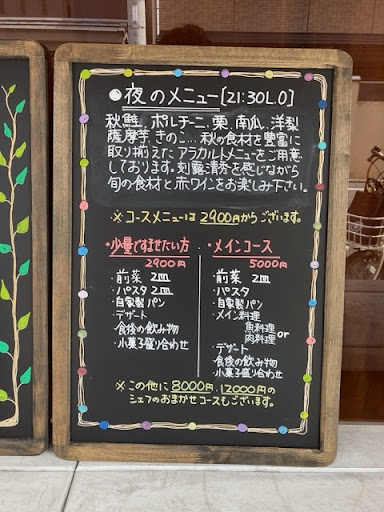 ●夜のメニュー[21:30L.O]
秋鮭、ポルチーニ、栗、南瓜、洋梨
薩摩芋、きのこ...秋の食材を豊富に
取り揃えたアラカルトメニューをご用意
しております。刻露清秀を感じながら
旬の食材と赤ワインをお楽しみ下さい。
※コースメニューは2900円からございます。
・少量ですませたい方
2900円
・前菜 2皿
・パスタ 2皿
・自家製パン
・デザート
・食後の飲み物
・小菓子盛り合わせ
・メインコース
5000円
・前菜 2皿
・パスタ
・自家製パン
・メイン料理
魚料理or
肉料理
・デザート
・食後の飲み物
・小菓子盛り合わせ
※この他に8000円、12000円の
シェフのおまかせコースもございます。